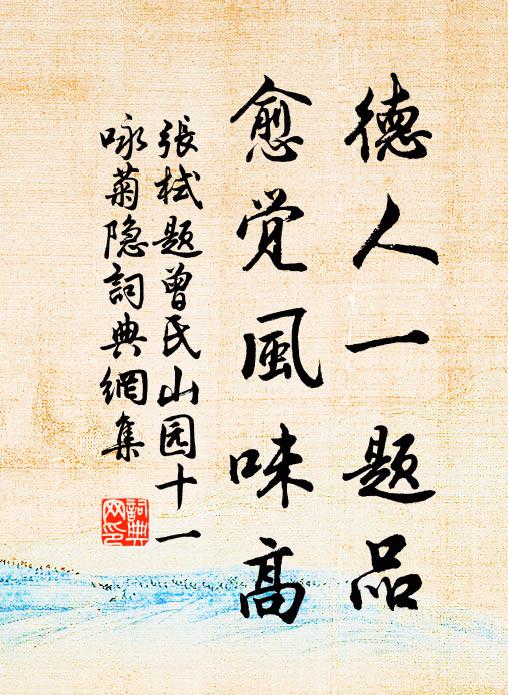 德人一题品
愈觉風味高
張栻题曾氏山园十一
咏菊隐詞典網集
詞典
网印